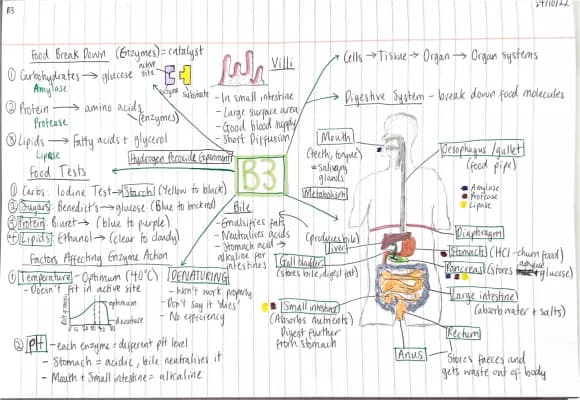 B3
24/10/22
Food Break Down (Enzymes) = catalyst
① Carbohydrates → glucose
Amylase
active site
enzyme
substrate
② Protein → amino acids
Protease
(enzymes)
③ Lipids → fatty acids + glycerol
Lipase
Hydrogen Peroxide Experiment
Food Tests
① Carbs: Iodine Test → Starch (Yellow to black)
② Sugars: Benedict's → glucose (Blue to brick red)
③ Protein: Biuret → (blue to purple)
④ Lipids: Ethanol → (clear to cloudy)
Factors Affecting Enzyme Action
① Temperature - Optimum (40°C)
- Doesn't fit in active site
optimum
denature
DENATURING
- Won't work properly
- Don't say it 'dies'
- No efficiency
② pH - each enzyme = different pH level
- Stomach = acidic, bile neutralises it
- Mouth + Small intestine = alkaline
Villi
- In small intestine
- Large surface area
- Good blood supply
- Short Diffusion
B3
Bile
- Emulsifies fats
- Neutralises acids
- Stomach acid →
alkaline for
intestines
Cells → Tissue → Organ → Organ systems
Digestive System - break down food molecules
Mouth
(teeth, tongue)
salivary
glands
Metabolism
Oesophagus/gullet
(food pipe)
Amylase
Protease
Lipase
Diaphragm
(produces bile)
Liver
Gall bladder
(stores bile, digest fat)
Stomach (HCl - churn food)
Pancreas (stores glucose)
Small intestine
(Absorbs nutrients)
Digest further
from stomach
Large intestine
(absorb water + salts)
Rectum
Anus
Stores faeces and
gets waste out of body